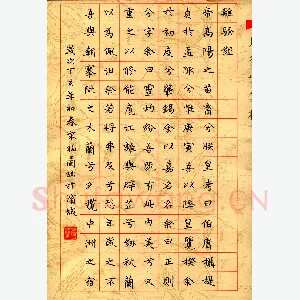 離騷經
帝高陽之苗裔兮朕皇考曰伯庸攝提
貞於孟陬兮惟庚寅吾以降皇覽揆余
於初度兮肇錫余以嘉名名余曰正則
兮字余曰靈均紛吾既有此內美兮又
重之以修能扈江離與辟芷兮紉秋蘭
以為佩汨余若將弗及兮恐年歲之不
吾與朝搴阰之木蘭兮夕攬中洲之宿
歲次丁亥年初春宋福蘭於蒲城